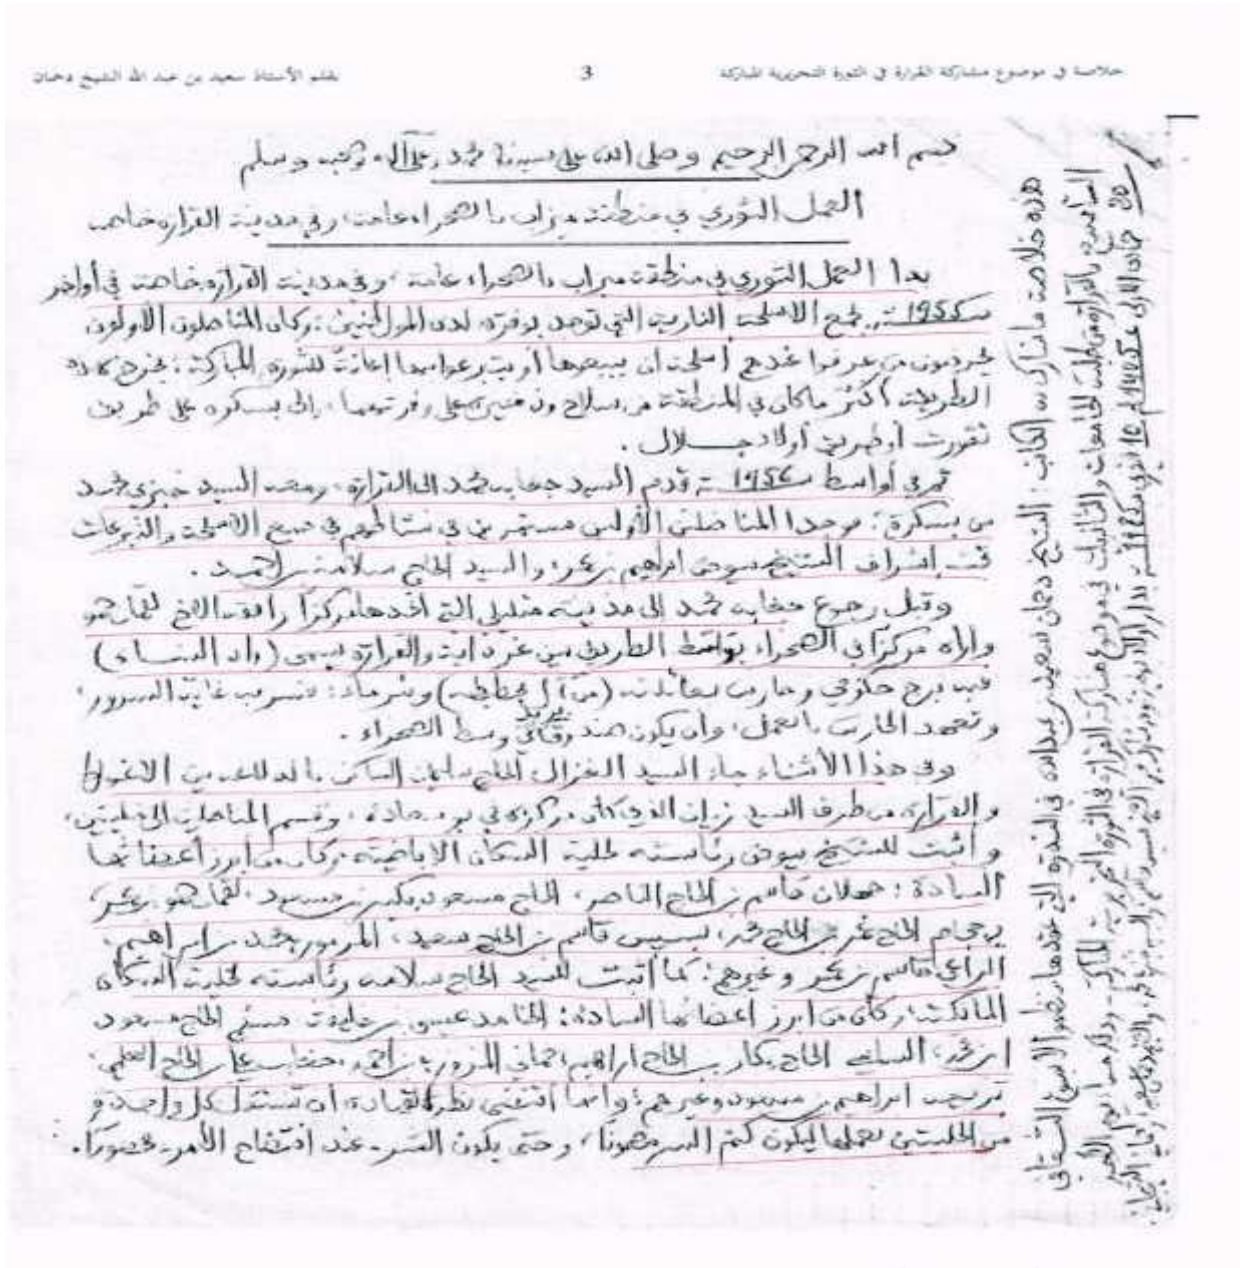 خلاصة في موضوع مشاركة القرارة في الثورة التحريرية المباركة 3 بقلم الأستاذ سعيد بن عبد الله الشيخ دحمان
بسم الله الرحمن الرحيم وصلى الله على سيدنا محمد وعلى آله وصحبه وسلم
العمل الثوري في منطقة ميزاب بالصحراء عامة، وفي مدينة القرارة خاصة
بدا العمل الثوري في منطقة ميزاب بالصحراء عامة، وفي مدينة القرارة خاصة في أواخر
سنة 1955، بجمع الاسلحة النارية التي توجد بوفرة لدى المواطنين؛ وكان المناضلون الأولون
من عرفوا عندهم أسلحة أن يبيعها أو يتبرعوا بها إعانة للثورة المباركة؛ بهذه
الطريقة أكثر ما كان في المنطقة من سلاح وذخيرة على وفرتهما، إلى بسكرة على طريق
تقورت أو طريق أولاد جلال.
ثم في أواسط سنة 1956 قدم السيد جغابة محمد الى القرارة، ومعه السيد خبزي محمد
من بسكرة؛ فوجدا المناضلين الأولين مستمرين في نشاطهم في جمع الاسلحة والتبرعات
تحت إشراف الشيخ بيوض ابراهيم بن عمر، والسيد الحاج سلامة بن احميد.
وقبل رجوع جغابة محمد إلى مدينة متليلي التي اتخذها مركزا رافقه الاخ لقمان حمو
وأراه مركزا في الصحراء يتوسط الطريق بين غرداية والقرارة يسمى (واد النساء)
فيه برج حكومي وحارس بعائلته وبئر ماء؛ فسر به غاية السرور،
وتعهد الحارس بالعمل، وأن يكون صندوق بريد وسط الصحراء.
وفي هذا الأثناء جاء السيد الغزال الحاج سليمان الساكن
والقرارة من طرف السيد زيان الذي كان مركزه في بوسعادة، وقسم المناضلين الى خليتين،
وأثبت للشيخ بيوض رئاسته لخلية السكان الاباضية، وكان من ابرز أعضائها
السادة: جهلان قاسم بن الحاج الناصر، الحاج مسعود بكير بن مسعود، لقمان حمو بن عمر،
الحاج عمر بن الحاج محمد، بسيس قاسم بن الحاج سعيد، المرموري محمد بن ابراهيم،
الراعي قاسم بن عمر وغيرهم؛ كما أثبت للسيد الحاج سلامة رئاسته لخلية السكان
المالكية، وكان من ابرز اعضائها السادة: عيسى بن خليفة، الحاج مسعود
ابن محمد، السايح الحاج بكار بن الحاج ابراهيم، بن احمد، الحاج العلمي،
ابراهيم بن مسعود وغيرهم؛ وإنما اقتضى نظر القيادة، أن تستقل كل واحدة
من الخليتين بعملها ليكون كتم السر مضمونا، وحتى يكون الشر - عند افتضاح الأمر - محصورا.
هذه خلاصة ما شارك به الكاتب: الشيخ دحمان سعيد بن عبدالله في الندوة التي عقدها
بالقرارة من طلبة الجامعات والثانويات في موضوع مشاركة القرارة في الثورة التحريرية المباركة